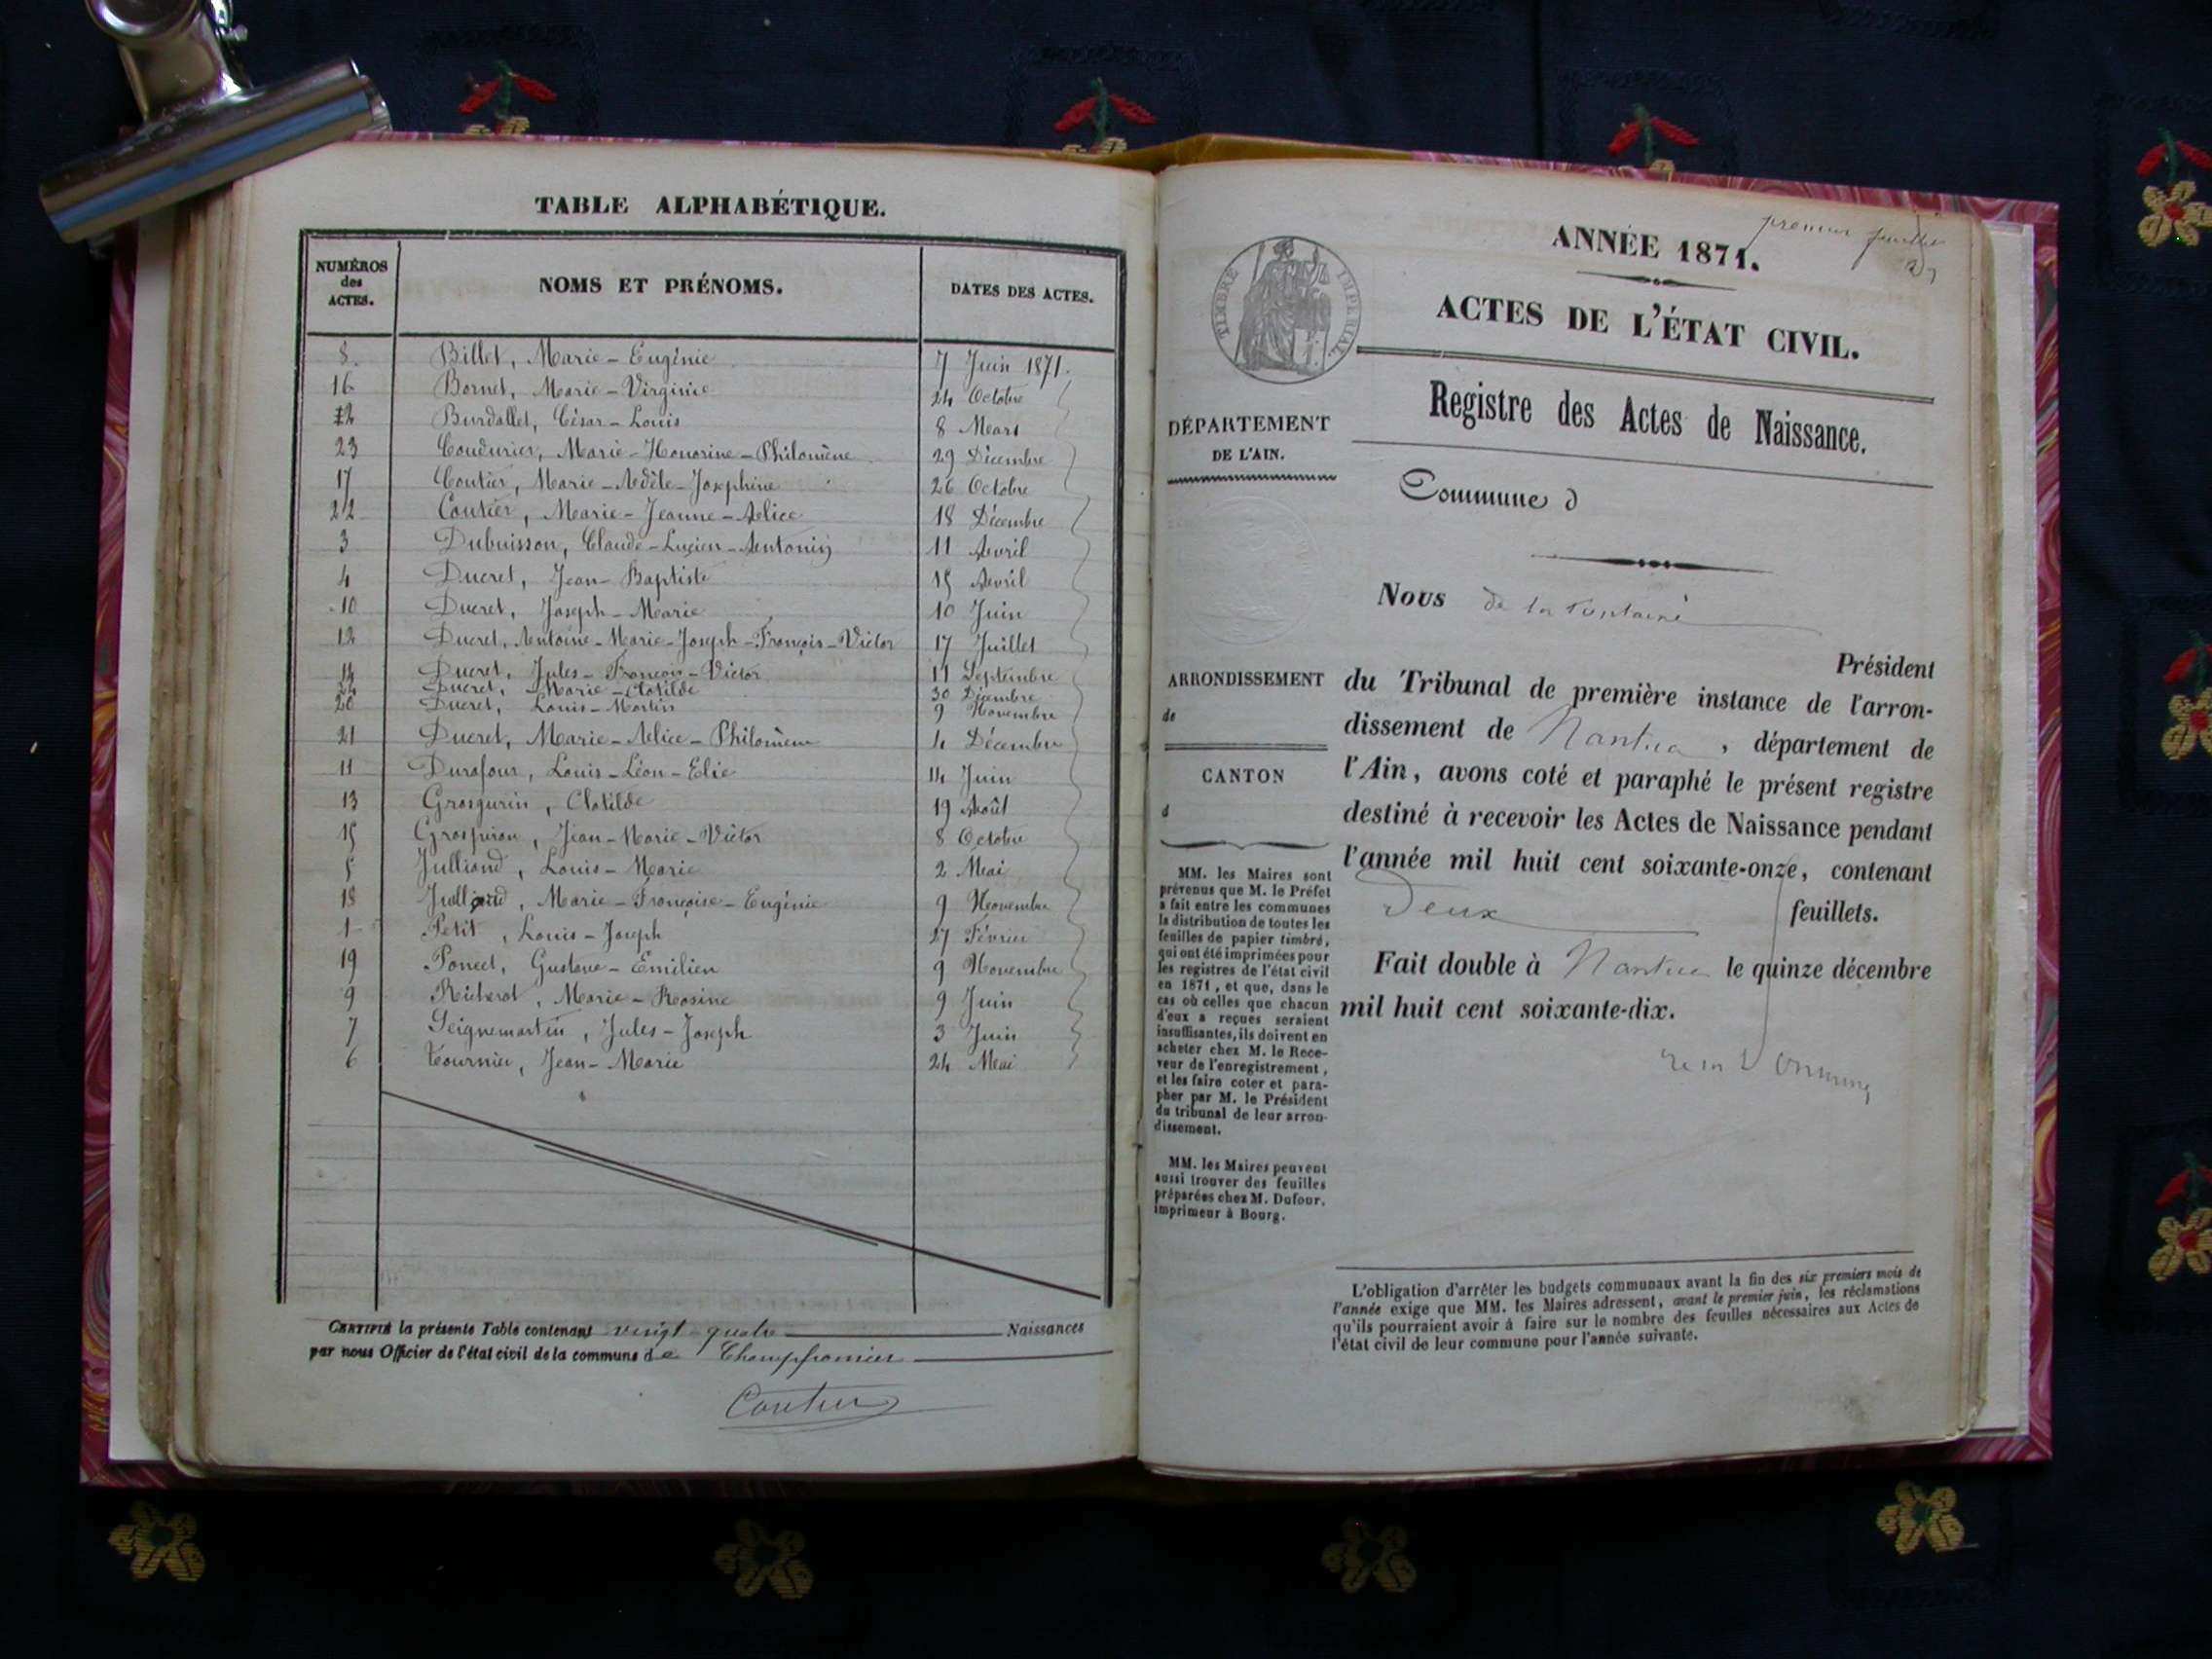 TABLE ALPHABÉTIQUE.
NUMÉROS des ACTES. NOMS ET PRÉNOMS. DATES DES ACTES.
8 Billet, Marie-Eugénie 7 Juin 1871.
16 Bornet, Marie-Virginie 24 Octobre
2 Burdallet, César-Louis 8 Mars
23 Coudurier, Marie-Honorine-Philomène 29 Décembre
17 Coutier, Marie-Adèle-Joséphine 26 Octobre
22 Coutier, Marie-Jeanne-Alice 18 Décembre
3 Dubuisson, Claude-Lucien-Antonin 11 Avril
4 Ducret, Jean-Baptiste 15 Avril
10 Ducret, Joseph-Marie 10 Juin
12 Ducret, Antoine-Marie-Joseph-François-Victor 17 Juillet
14 Ducret, Jules-François-Victor 11 Septembre
24 Ducret, Marie-Clotilde 30 Décembre
20 Ducret, Louis-Martin 9 Novembre
21 Ducret, Marie-Alice-Philomène 4 Décembre
11 Durafour, Louis-Léon-Elie 14 Juin
13 Grosgurin, Clotilde 19 Août
15 Grospiron, Jean-Marie-Victor 8 Octobre
5 Julliand, Louis-Marie 2 Mai
18 Julliand, Marie-Françoise-Eugénie 9 Novembre
1 Petit, Louis-Joseph 27 Février
19 Poncet, Gustave-Emilien 9 Novembre
9 Richerot, Marie-Rosine 9 Juin
7 Seignemartin, Jules-Joseph 3 Juin
6 Tournier, Jean-Marie 24 Mai
CERTIFIÉ la présente Table contenant vingt-quatre Naissances
par nous Officier de l'état civil de la commune de Champfromier
Coutier
premier feuillet
ANNÉE 1871.
TIMBRE IMPÉRIAL
ACTES DE L'ÉTAT CIVIL.
Registre des Actes de Naissance.
DÉPARTEMENT
DE L'AIN.
Commune d
Nous de la Fontaine
Président
ARRONDISSEMENT
de
CANTON
d
du Tribunal de première instance de l'arron-
dissement de Nantua, département de
l'Ain, avons coté et paraphé le présent registre
destiné à recevoir les Actes de Naissance pendant
l'année mil huit cent soixante-onze, contenant
Deux feuillets.
Fait double à Nantua le quinze décembre
mil huit cent soixante-dix.
MM. les Maires sont
prévenus que M. le Préfet
a fait entre les communes
la distribution de toutes les
feuilles de papier timbré,
qui ont été imprimées pour
les registres de l'état civil
en 1871, et que, dans le
cas où celles que chacun
d'eux a reçues seraient
insuffisantes, ils doivent en
acheter chez M. le Rece-
veur de l'enregistrement,
et les faire coter et para-
pher par M. le Président
du tribunal de leur arron-
dissement.
MM. les Maires peuvent
aussi trouver des feuilles
préparées chez M. Dufour,
imprimeur à Bourg.
L'obligation d'arrêter les budgets communaux avant la fin des six premiers mois de
l'année exige que MM. les Maires adressent, avant le premier juin, les réclamations
qu'ils pourraient avoir à faire sur le nombre des feuilles nécessaires aux Actes de
l'état civil de leur commune pour l'année suivante.